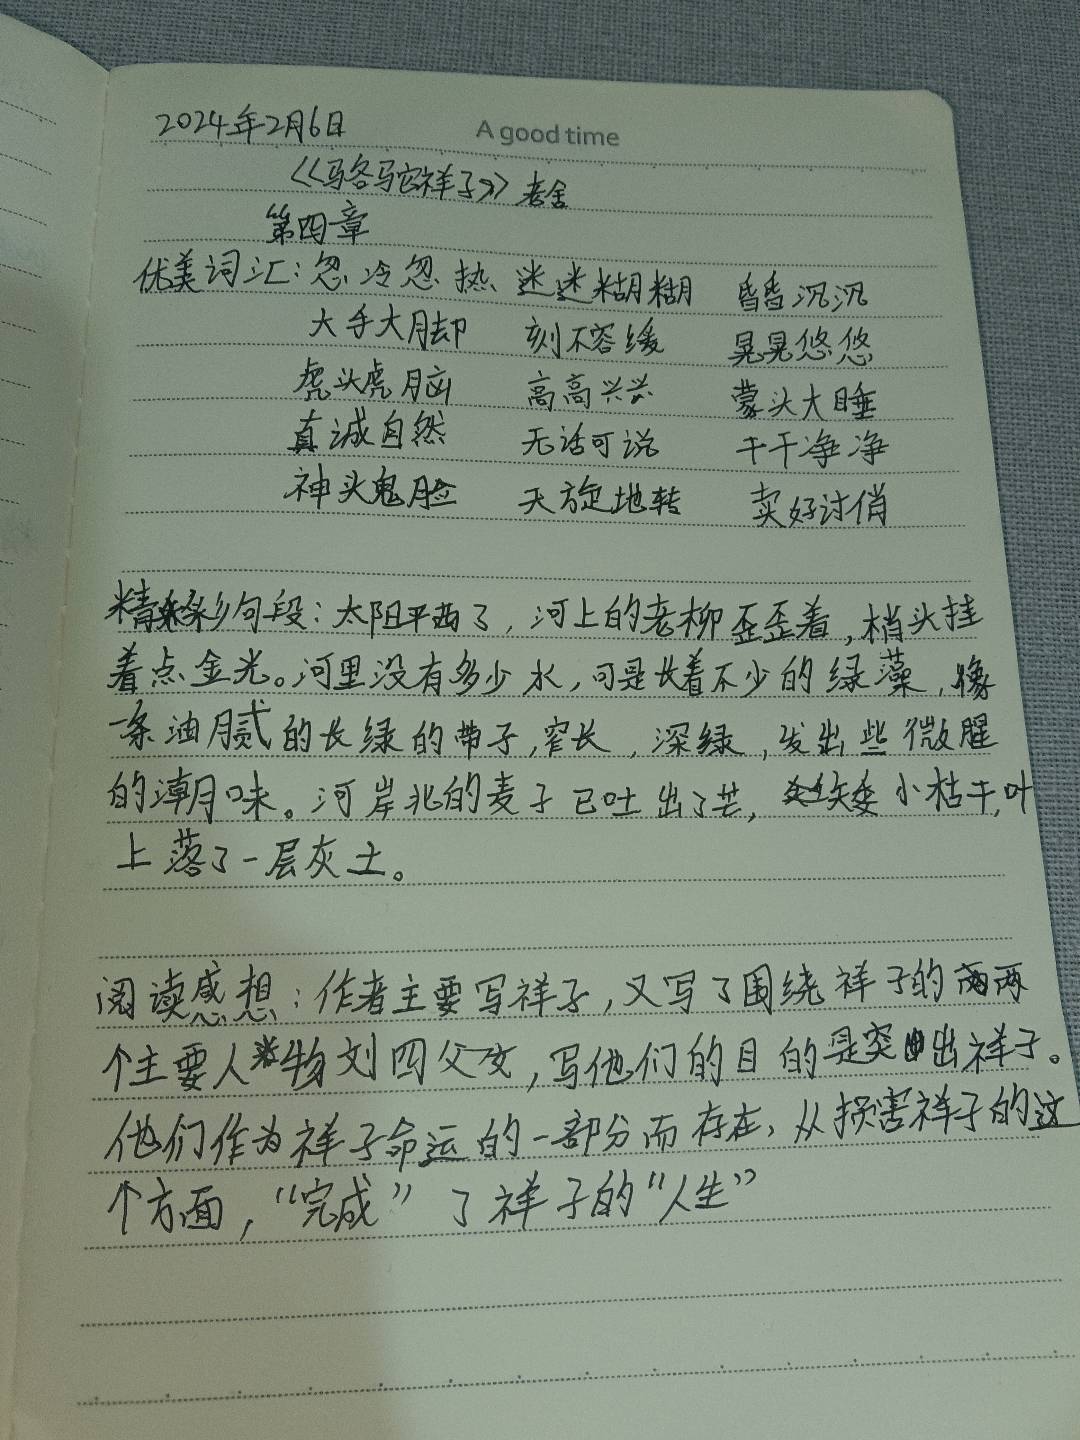 2024年2月6日
A good time
《骆驼祥子》老舍
第四章
优美词汇：忽冷忽热 迷迷糊糊 昏昏沉沉
大手大脚 刻不容缓 晃晃悠悠
虎头虎脑 高高兴兴 蒙头大睡
真诚自然 无话可说 干干净净
神头鬼脸 天旋地转 卖好讨俏
精彩句段：太阳平西了，河上的老柳歪歪着，梢头挂
着点金光。河里没有多少水，可是长着不少的绿藻，像
一条油腻的长绿的带子，窄长，深绿，发出些微腥
的潮味。河岸北的麦子已吐出了芒，矮小枯干，叶
上落了一层灰土。
阅读感想：作者主要写祥子，又写了围绕祥子的两
个主要人物刘四父女，写他们的目的是突出祥子。
他们作为祥子命运的一部分而存在，从损害祥子的这
个方面，“完成”了祥子的“人生”